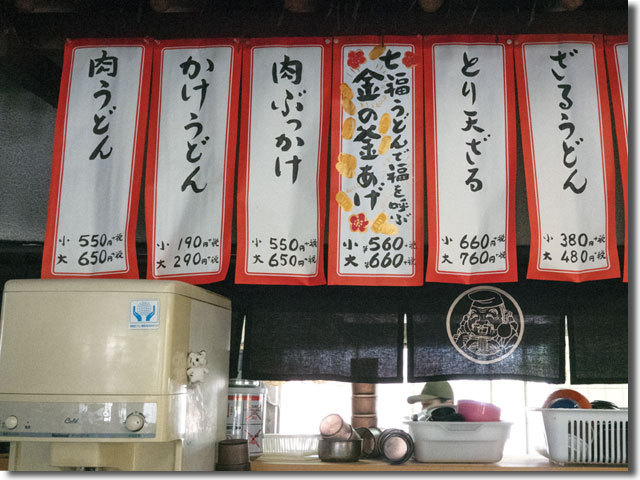 肉うどん
小 550円+税
大 650円+税
かけうどん
小 190円+税
大 290円+税
肉ぶっかけ
小 550円+税
大 650円+税
七福うどんで福を呼ぶ
金の釜あげ
小 ¥560+税
大 ¥660+税
とり天ざる
小 660円+税
大 760円+税
ざるうどん
小 380円+税
大 480円+税
Cold
National